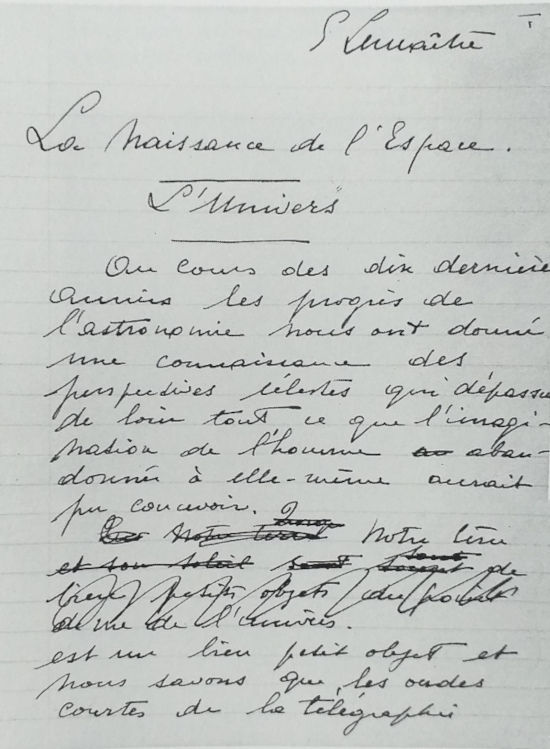 G Lemaître
I
La Naissance de l'Espace.
L'Univers
Au cours des dix dernière
années les progrès de
l'astronomie nous ont donné
une connaissance des
perspectives célestes qui dépasse
de loin tout ce que l'imagi-
nation de l'homme aban-
donnée à elle-même aurait
pu concevoir.
Notre terre Notre terre
et son soleil sont sont de
bien petits objets du point
de vue de l'univers.
est un bien petit objet et
nous savons que les ondes
courtes de la télégraphie